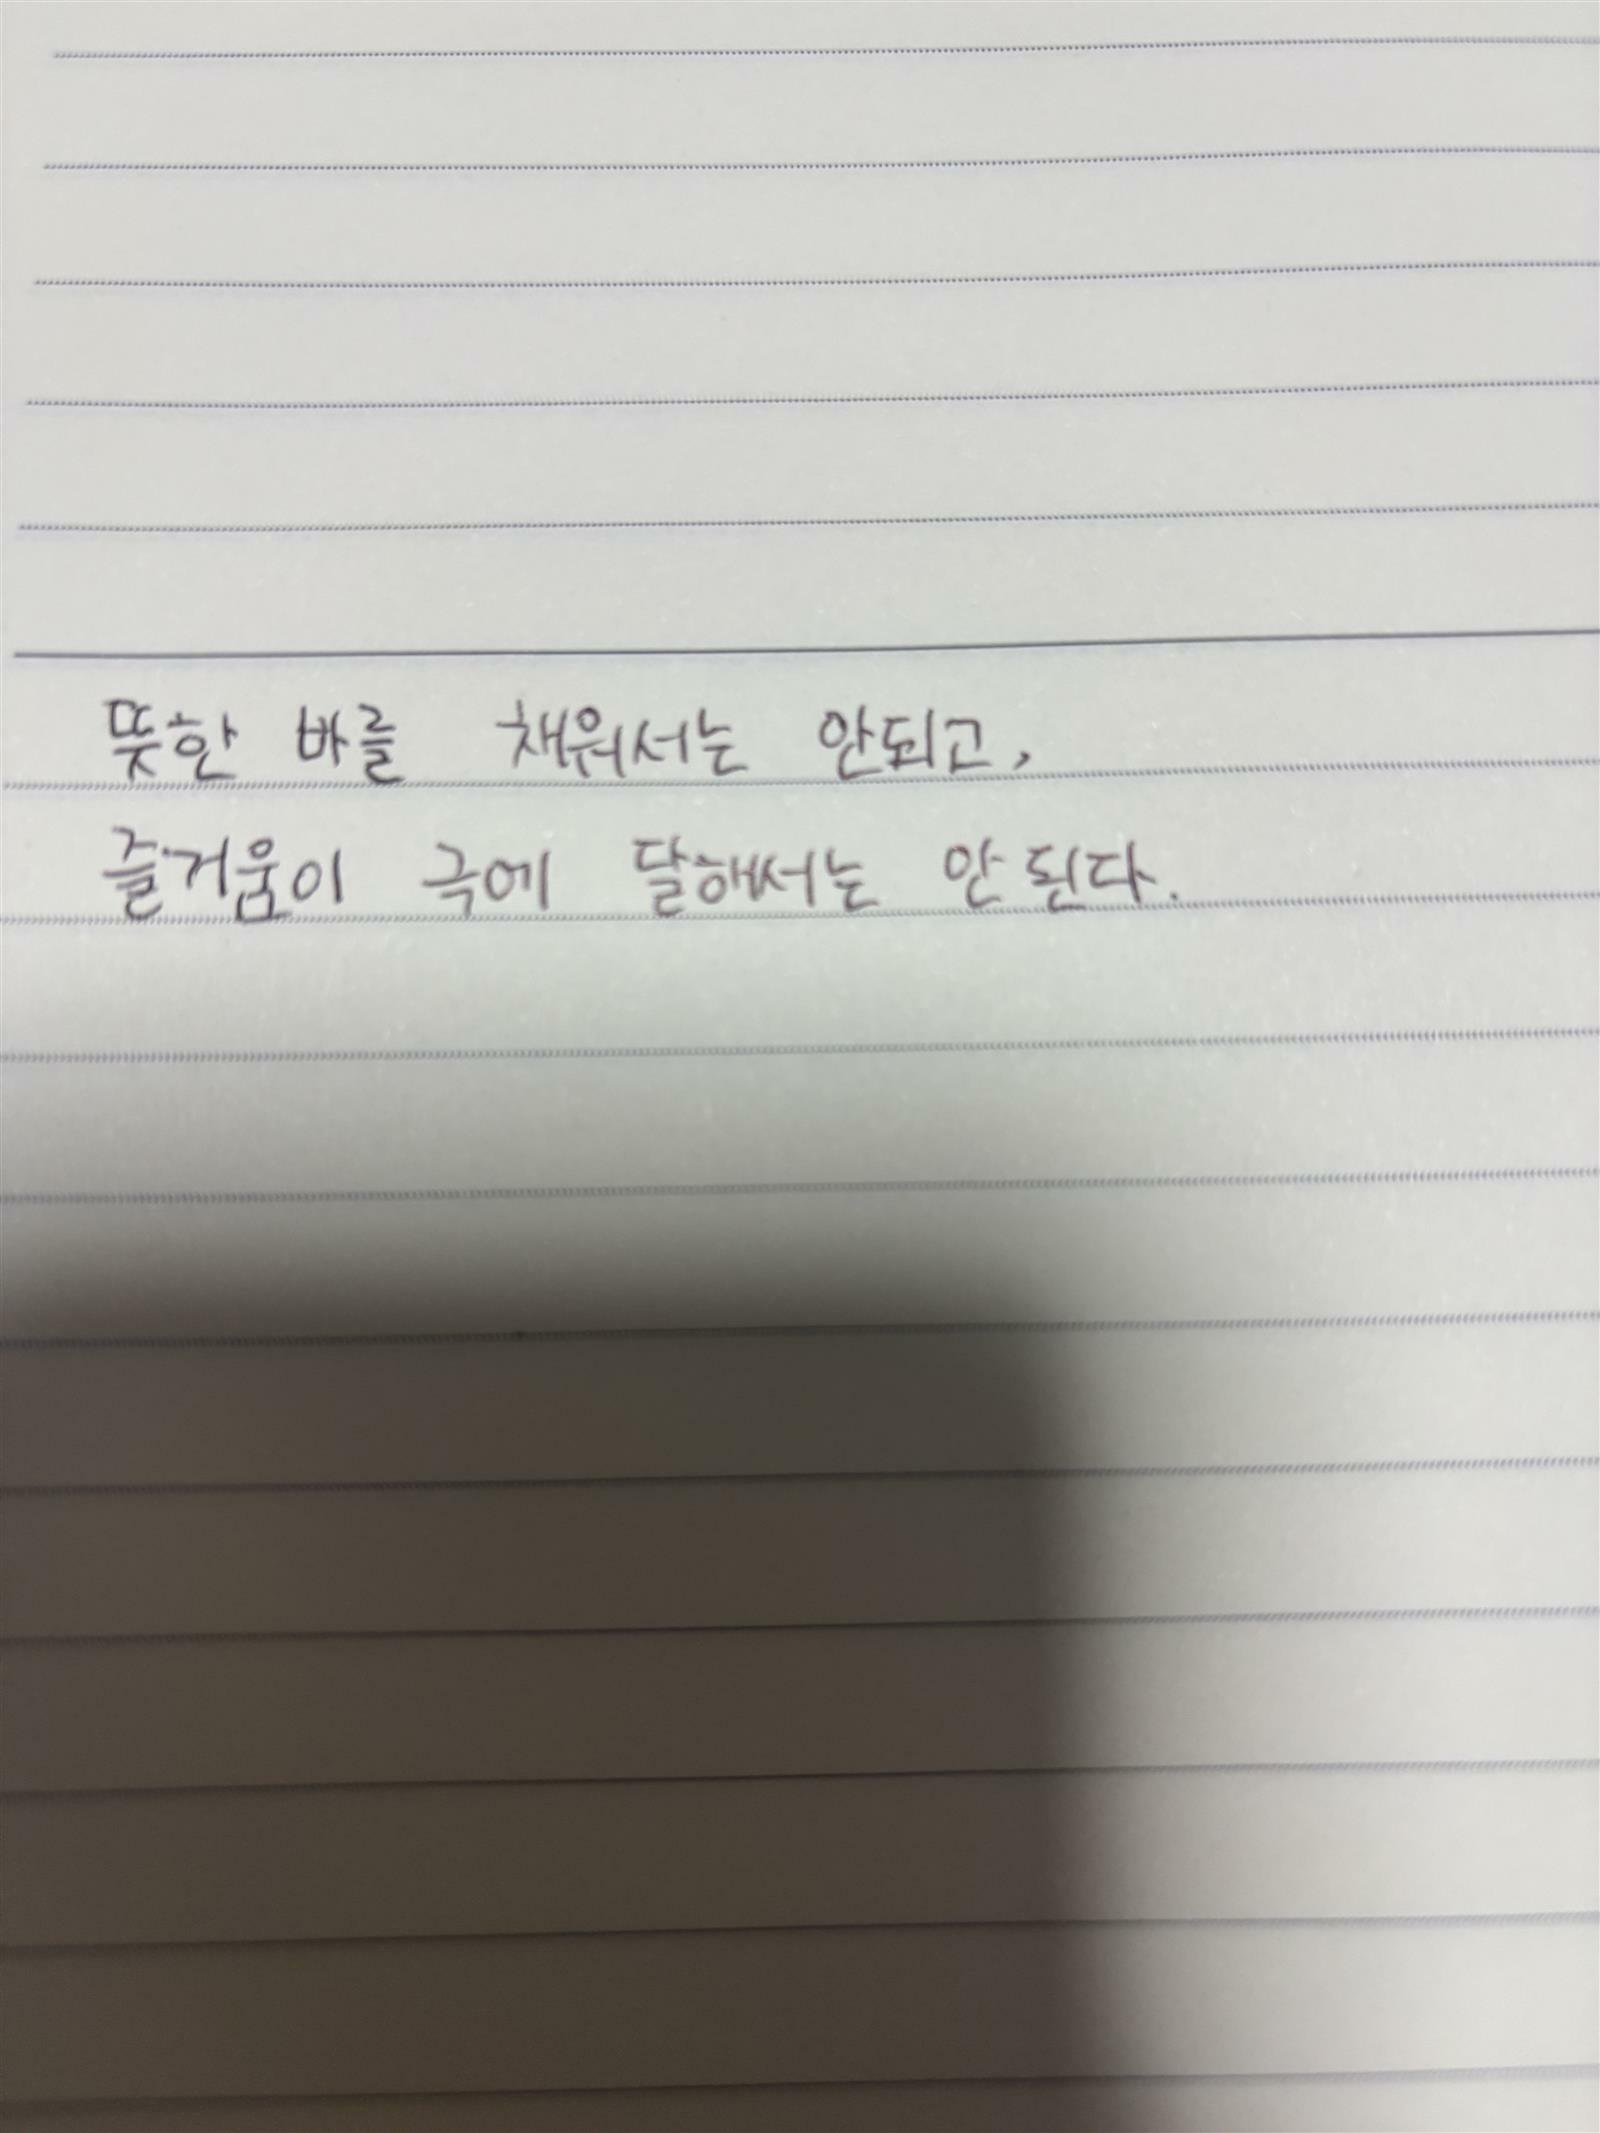 뜻한 바를 채워서는 안되고,
즐거움이 극에 달해서는 안 된다.